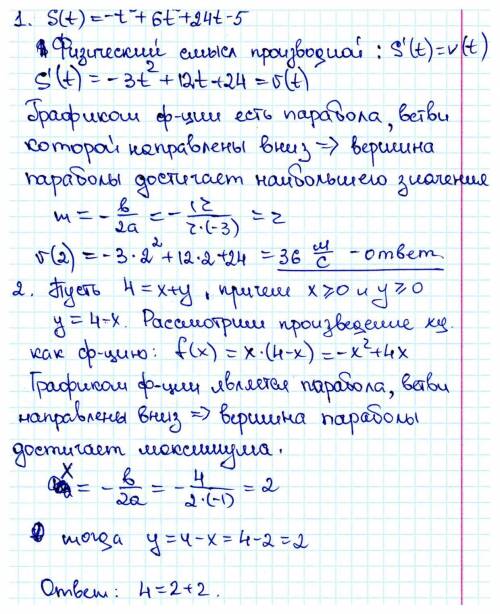 1. S(t) = -t³ + 6t² + 24t - 5
Физический смысл производной : S'(t) = v(t)
S'(t) = -3t² + 12t + 24 = v(t)
Графиком ф-ции есть парабола, ветви
которой направлены вниз => вершина
параболы достигает наибольшего значения
m = - в/2a = - 12/2·(-3) = 2
v(2) = -3·2² + 12·2 + 24 = 36 м/с - ответ
2. Пусть 4 = x+y, причем x ⩾ 0 и y ⩾ 0
y = 4-x. Рассмотрим произведение xy
как ф-цию: f(x) = x·(4-x) = -x² + 4x
Графиком ф-ции является парабола, ветви
направлены вниз => вершина параболы
достигает максимума.
x = - в/2a = - 4/2·(-1) = 2
тогда y = 4-x = 4-2 = 2
Ответ: 4 = 2+2.